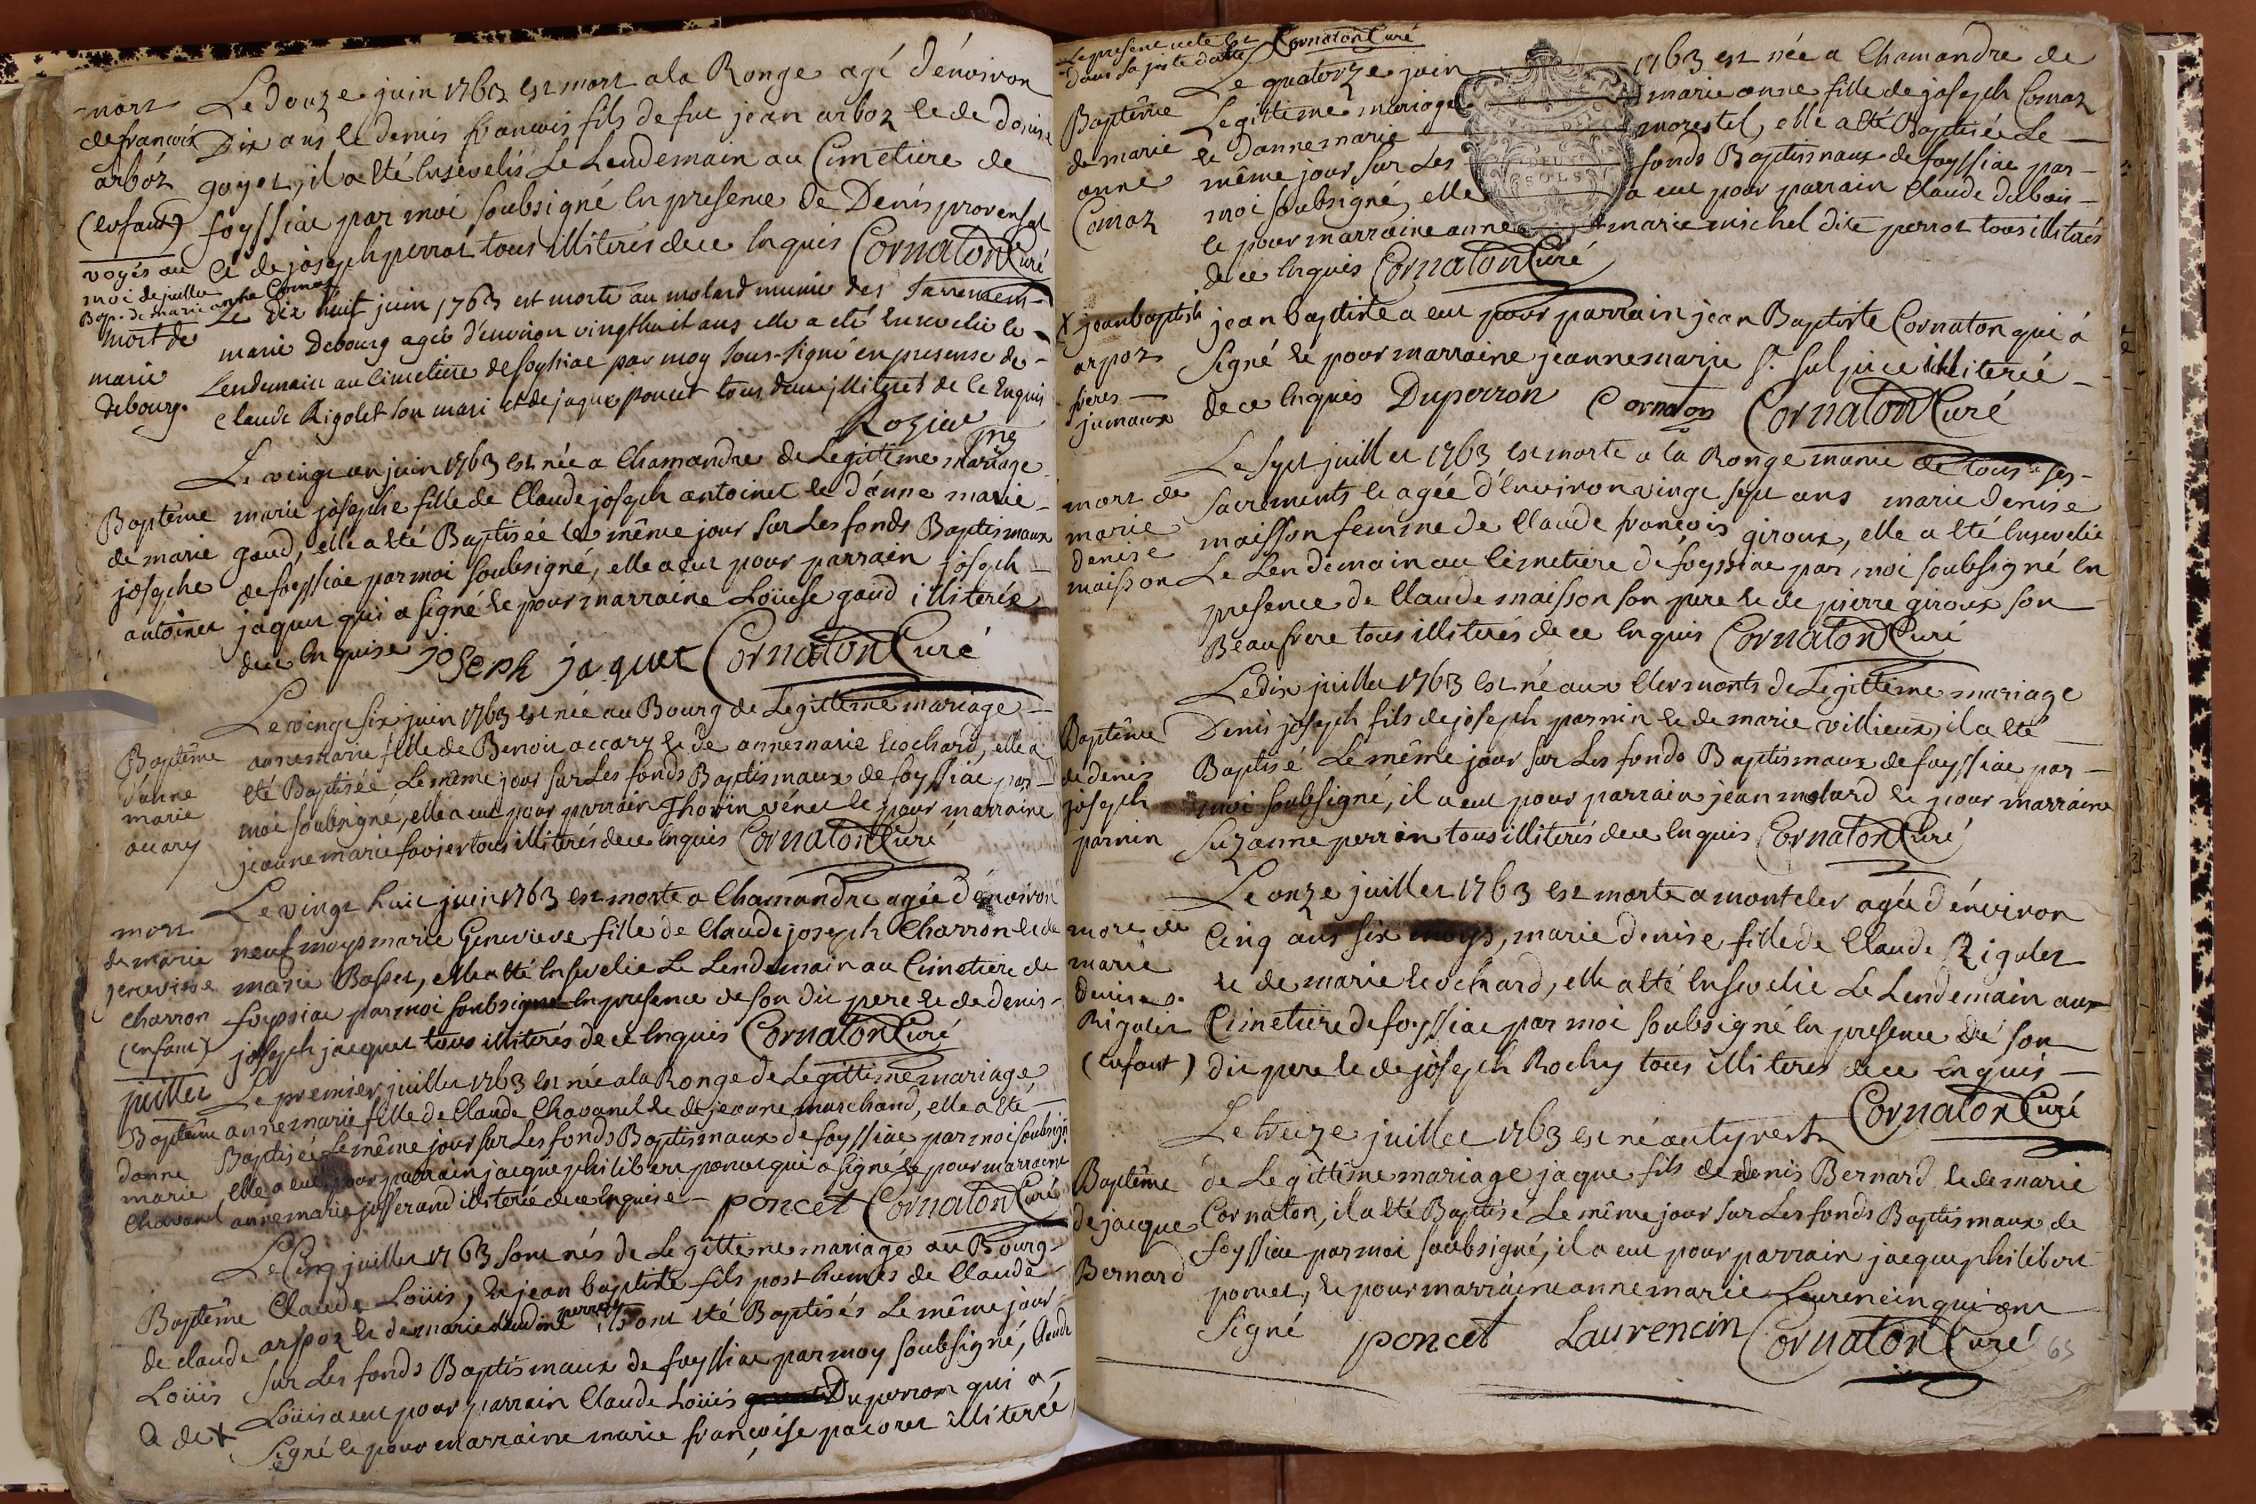 mort
de francois
arboz
(enfant)
voyés au
moi de juillet
Bap. de marie anne Comaz
Le douze juin 1763 est mort a la Ronge agé d'énviron
Dix ans et demis francois fils de fut jean arboz et de denise
goyet, il a eté Ensevelis Le Lendemain au Cimetiere de
foyssiac par moi soubsigné En presence de Denis provensal
et de joseph perrot tous illiterés de ce Enquis Cornaton Curé
mort de
marie
debourg.
Le dix huit juin 1763 est morte au molard munie des Sacremens
marie Debourg agée d'environ vingthuit ans elle a eté Ensevelie le
Lendemain au cimetiere de foyssiac par moy sous-signé en presense de
claude Rigolet son mari et de jaque poncet tous deux illiteres de ce Enquis
Roziat
Baptême
de marie
josephe
antoinet
Le vingt un juin 1763 est née a Chamandre de Legittime mariage
marie josephe fille de Claude joseph antoinet et d'anne marie
gaud, elle a eté Baptisée le même jour sur Les fonds Baptismaux
de foyssiac par moi soubsigné, elle a eut pour parrain joseph
jaquet qui a signé et pour marraine Loüise gaud illiterée
de ce Enquise joseph jaquet Cornaton Curé
Baptême
d'anne
marie
accary
Le vingt six juin 1763 est née au Bourg de Legittime mariage
annemarie fille de Benoit accary et de annemarie cochard, elle a
eté Baptisée Le même jour sur Les fonds Baptismaux de foyssiac par
moi soubsigné, elle a eut pour parrain Thorin vénet et pour marraine
jeanne marie favier tous illiterés de ce Enquis Cornaton Curé
mort
de marie
genevieve
charron
(enfant)
Le vingt huit juin 1763 est morte a Chamandre agée d'énviron
neuf moys marie Genevieve fille de Claude joseph Charron et de
marie Basset, elle a eté Ensevelie Le Lendemain au Cimetiere de
foyssiac par moi soubsigné En presence de son dit pere et de denis
joseph jacquet tous illiterés de ce Enquis Cornaton Curé
juillet
Baptême
d'anne
marie
Chavanel
Le premier juillet 1763 est née a la Ronge de Legittime mariage
annemarie fille de Claude Chavanel et de jeanne marchand, elle a eté
Baptisée Le même jour sur Les fonds Baptismaux de foyssiac par moi soubsigné
elle a eut pour parrain jacque philibert poncet qui a signé et pour marraine
annemarie josserand illiterée de ce Enquise poncet Cornaton Curé
Baptême
de claude
Loüis
& de +
Le Cinq juillet 1763 sont nés de Legittime mariage au Bourg
Claude Loüis, et jean baptiste fils posthumes de Claude
arpoz et de marie claudine perret ils ont eté Baptisés Le même jour
sur Les fonds Baptismaux de foyssiac par moy soubsigné, Claude
Loüis a eut pour parrain Claude Loüis Duperron qui a
signé et pour marraine marie françoise pacoret illiterée
Le present acte est
dans sa juste datte
Cornaton Curé
Baptême
de marie
anne
Comaz
Le quatorze juin 1763 est née a Chamandre de
Legittime mariage marie anne fille de joseph Comaz
et d'annemarie morestel, elle a eté Baptisée Le
même jour sur Les fonds Baptismaux de foyssiac par
moi soubsigné, elle a eut pour parrain Claude dubois
et pour marraine anne marie michel dite perrot tous illiterés
de ce Enquis Cornaton Curé
DEUX
SOLS
+ jeanbaptiste
arpoz
freres
jumaux
jean baptiste a eut pour parrain jean Baptiste Cornaton qui a
signé et pour marraine jeannemarie St. sulpice illiterée
de ce Enquis Duperron Cornaton Cornaton Curé
mort de
marie
denise
maisson
Le Sept juillet 1763 est morte a la Ronge munie de tous ses
sacrements et agée d'Environ vingt sept ans marie denise
maisson femme de Claude françois giroux, elle a eté Ensevelie
Le Lendemain au Cimetiere de foyssiac par moi soubsigné En
presence de Claude maisson son pere et de pierre giroux son
Beaufrere tous illiterés de ce Enquis Cornaton Curé
Baptême
de denis
joseph
parnin
Le dix juillet 1763 est né aux Clermonts de Legittime mariage
Denis joseph fils de joseph parnin et de marie villieux, il a eté
Baptisé Le même jour sur Les fonds Baptismaux de foyssiac par
moi soubsigné, il a eut pour parrain jean molard et pour marraine
Suzanne perrin tous illiterés de ce Enquis Cornaton Curé
mort de
marie
denise
Rigolet
(enfant)
Le onze juillet 1763 est morte a montcler agée d'énviron
Cinq ans six moys, marie denise fille de Claude Rigolet
et de marie cochard, elle a eté Ensevelie Le Lendemain aux
Cimetiere de foyssiac par moi soubsigné En presence de son
dit pere et de joseph Rochy tous illiteres de ce Enquis
Cornaton Curé
Baptême
de jacques
Bernard
Le treize juillet 1763 est né au
de Legittime mariage jaque fils de denis Bernard et de marie
Cornaton, il a eté Baptisé Le même jour sur Les fonds Baptismaux de
foyssiac par moi soubsigné, il a eut pour parrain jacque philibert
poncet, et pour marraine anne marie Laurencin qui ont
signé poncet Laurencin Cornaton Curé
65